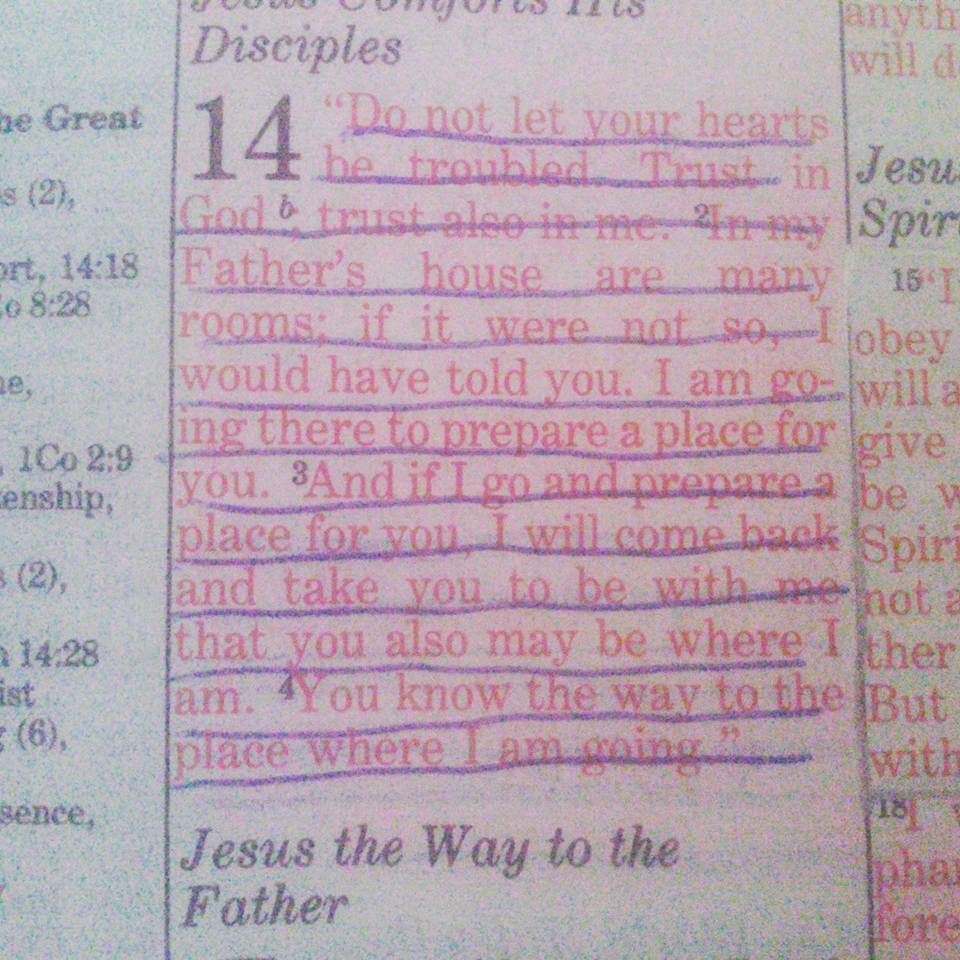 he Great
s (2),
ort, 14:18
o 8:28
ne,
, 1Co 2:9
zenship,
s (2),
14:28
ist
(6),
sence,
Jesus Comforts His
Disciples
14 “Do not let your hearts
be troubled. Trust in
God b; trust also in me. 2In my
Father’s house are many
rooms; if it were not so, I
would have told you. I am go-
ing there to prepare a place for
you. 3And if I go and prepare a
place for you, I will come back
and take you to be with me
that you also may be where I
am. 4You know the way to the
place where I am going.”
Jesus the Way to the
Father
anyth
will d
Jesu
Spir
15“I
obey
will a
give
be w
Spiri
not a
ther
But
with
18I w
phan
fore